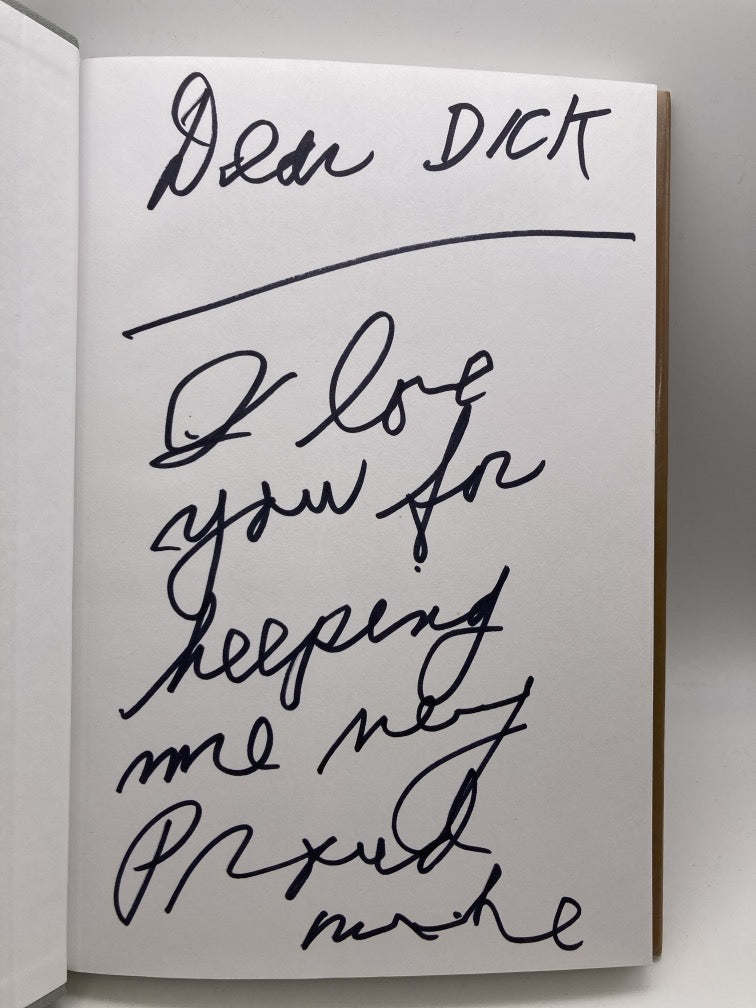 Dear DICK
I love
you for
keeping
me very
Proud